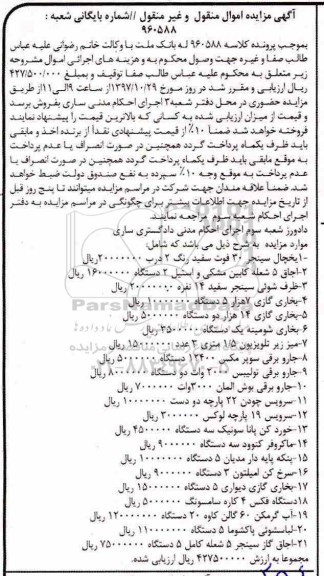 آگهی مزایده اموال منقول و غیر منقول //شماره بایگانی شعبه :
۹۶۰۵۸۸
بموجب پرونده کلاسه ۹۶۰۵۸۸ له بانک ملت با وکالت خانم رضوانی علیه عباس
طالب صفا و غیره جهت وصول محکوم به و هزینه های اجرائی اموال مشروحه
زیر متعلق به محکوم علیه عباس طالب صفا توقیف و بمبلغ ۴۲۷/۵۰۰/۰۰۰
ریال ارزیابی و مقرر شد در روز مورخ ۱۳۹۷/۱۰/۲۹از ساعت ۹الی۱۱از طریق
مزایده حضوری در محل دفتر شعبه۳ اجرای احکام مدنی ساری بفروش برسد
و قیمت از میزان ارزیابی شده به کسانی که بالاترین قیمت را پیشنهاد نمایند
فروخته خواهد شد ضمناً ۱۰٪ از قیمت پیشنهادی نقداً از برنده اخذ و مابقی
باید ظرف یکماه پرداخت گردد همچنین در صورت انصراف یا عدم پرداخت
به موقع مابقی باید ظرف یکماه پرداخت گردد همچنین در صورت انصراف یا
عدم پرداخت به موقع وجه ۱۰٪ سپرده به نفع صندوق دولت ضبط خواهد
شد ضمناً علاقه مندان جهت شرکت در مراسم مزایده میتوانند تا پنج روز قبل
از تاریخ مزایده جهت اطلاعات بیشتر برای چگونگی در مراسم مزایده به دفتر
اجرای احکام شعبه سوم مراجعه نمایند.
دادورز شعبه سوم اجرای احکام مدنی دادگستری ساری
موارد مزایده به شرح ذیل می باشد که شامل:
۱-یخچال سینجر ۳۰ فوت سفید رنگ ۲ درب ۲۰۰۰۰۰۰۰ریال
۲-اجاق ۵ شعله کابین مشکی و استیل ۲ دستگاه ۱۶۰۰۰۰۰۰ ریال
۳-ظرف شوئی سینجر سفید ۱۴ نفره ۲۰۰۰۰۰۰۰ ریال
۴-بخاری گازی ۷هزار ۵ دستگاه ۱۰۰۰۰۰۰۰ ریال
۵-بخاری گازی ۱۴ هزار دو دستگاه ۵۰۰۰۰۰۰ ریال
۶-بخاری شومینه یک دستگاه ۲۵۰۰۰۰۰ ریال
۷-میز زیر تلویزیون ۱/۵ متری ۲ عدد ۱۵۰۰۰۰۰۰ ریال
۸-جارو برقی سوپر مکس ۱۲۴۰۰ دستگاه ۵۰۰۰۰۰۰ ریال
۹-جارو برقی توليپس ۲۰۰۰ وات دو دستگاه ۸۰۰۰۰۰۰ ریال
۱۰-جارو برقی بوش المان ۳۰۰۰وات ۷۰۰۰۰۰۰ ریال
۱۱-سرویس چودن ۲۲ پارچه دو دست ۱۰۰۰۰۰۰۰ ریال
۱۲-سرویس ۱۹ پارچه لوکس ۳۰۰۰۰۰۰ ریال
۱۳-خورد کن پانا سونیک سه دستگاه ۴۵۰۰۰۰۰ ریال
۱۴-ماکروفر کنوود سه دستگاه ۹۰۰۰۰۰۰ ریال
۱۵-پنکه پایه دار مدیان ۵ دستگاه ۱۰۰۰۰۰۰۰ ریال
۱۶-سرخ کن امیلتون ۳ دستگاه ۹۰۰۰۰۰۰ ریال
۱۷-بخاری گازی دیواری ۵ دستگاه ۱۵۰۰۰۰۰۰ ریال
۱۸دستگاه فکس ۴ کاره سامسونگ ۵۰۰۰۰۰۰ ریال
۱۹-آب گرمکن ۶۰ گالن کاوه ۲۰ دستگاه ۱۲۰۰۰۰۰۰۰ ریال
۲۰-لباسشوئی پاکشوما ۵ دستگاه ۱۱۰۰۰۰۰۰ ریال
۲۱-اجاق گاز سینجر ۵ شعله کامل ۵ دستگاه ۷۵۰۰۰۰۰۰ ریال
مجموعا به ارزش ۴۲۷۵۰۰۰۰۰ ریال ارزیابی شده.